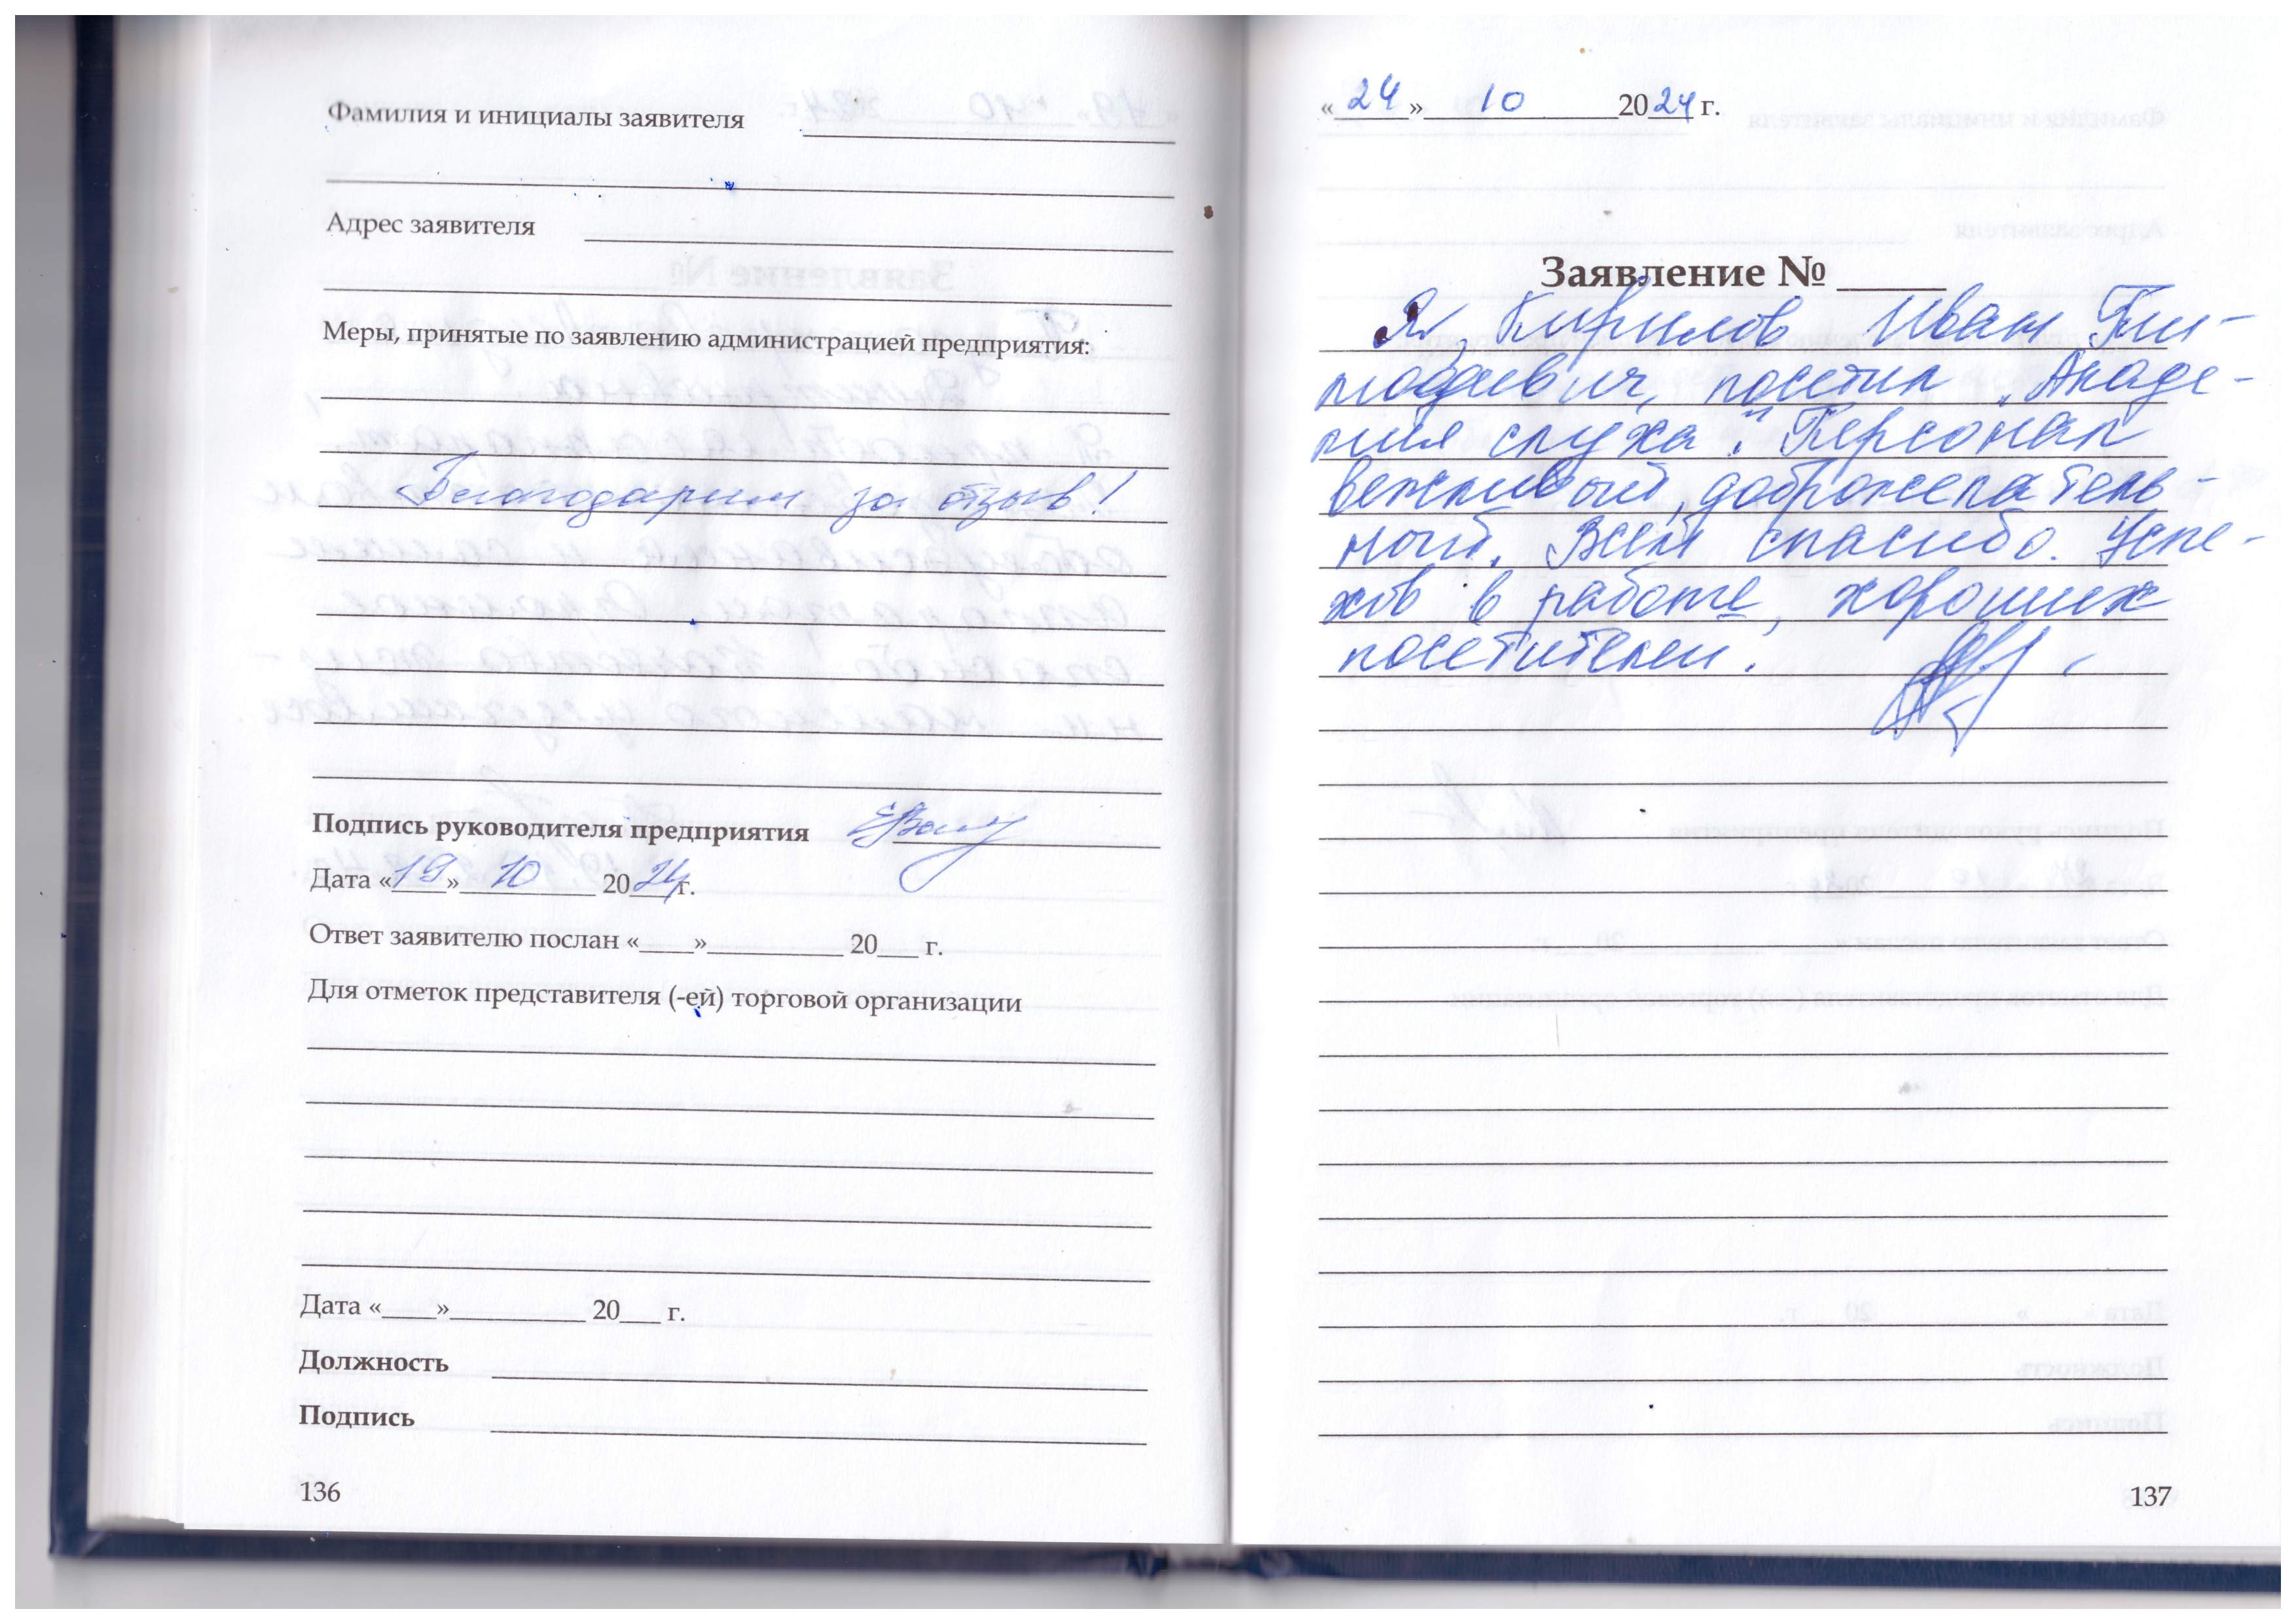 Фамилия и инициалы заявителя
Адрес заявителя
Меры, принятые по заявлению администрацией предприятия:
Благодарим за отзыв!
Подпись руководителя предприятия
Дата «19» 10 2024г.
Ответ заявителю послан «____»__________ 20___ г.
Для отметок представителя (-ей) торговой организации
Дата «____»__________ 20___ г.
Должность
Подпись
136
«24» 10 2024 г.
Заявление № _____
Я, Кирилов Иван Ти-
мофеевич, посетил "Акаде-
мия слуха". Персонал
вежливый, доброжелатель-
ный. Всем спасибо. Успе-
хов в работе, хороших
посетителей.
137